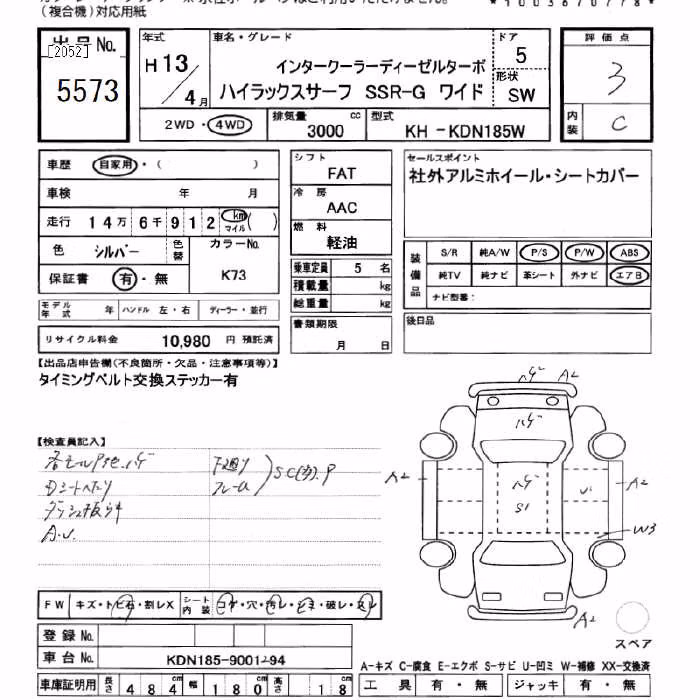 (複合機)対応用紙
出品No.
[2052]
5573
年式 車名・グレード ドア
H13/4月 インタークーラーディーゼルターボ 5
ハイラックスサーフ SSR-G ワイド 形状 SW
2WD・4WD 排気量 3000 cc 型式 KH-KDN185W
評価点
3
内装 C
車歴 自家用・( )
車検 年 月
走行 14万6千912 km マイル ( )
色 シルバー 色替 カラーNo. K73
保証書 有・無
モデル年式 年 ハンドル 左・右 ディーラー・並行
リサイクル料金 10,980 円 預託済
シフト
FAT
冷房
AAC
燃料
軽油
乗車定員 5 名
積載量 kg
総重量 kg
書類期限
月 日
セールスポイント
社外アルミホイール・シートカバー
装備品 S/R 純A/W P/S P/W ABS
純TV 純ナビ 革シート 外ナビ エアB
ナビ型番:
後日品
【出品店申告欄(不良箇所・欠品・注意事項等)】
タイミングベルト交換ステッカー有
【検査員記入】
A.U.
下廻り
フレーム
ハゲ A2
ハゲ
A2 ハゲ A2
S1 U1
W3
A2
スペア
FW キズ・トビ石・割レX シート内装 コゲ・穴・汚レ・シミ・破レ・スレ
登録No.
車台No. KDN185-9001294
車庫証明用 長さ 484 cm 幅 180 cm 高さ 18 cm
A-キズ C-腐食 E-エクボ S-サビ U-凹ミ W-補修 XX-交換済
工具 有・無 ジャッキ 有・無